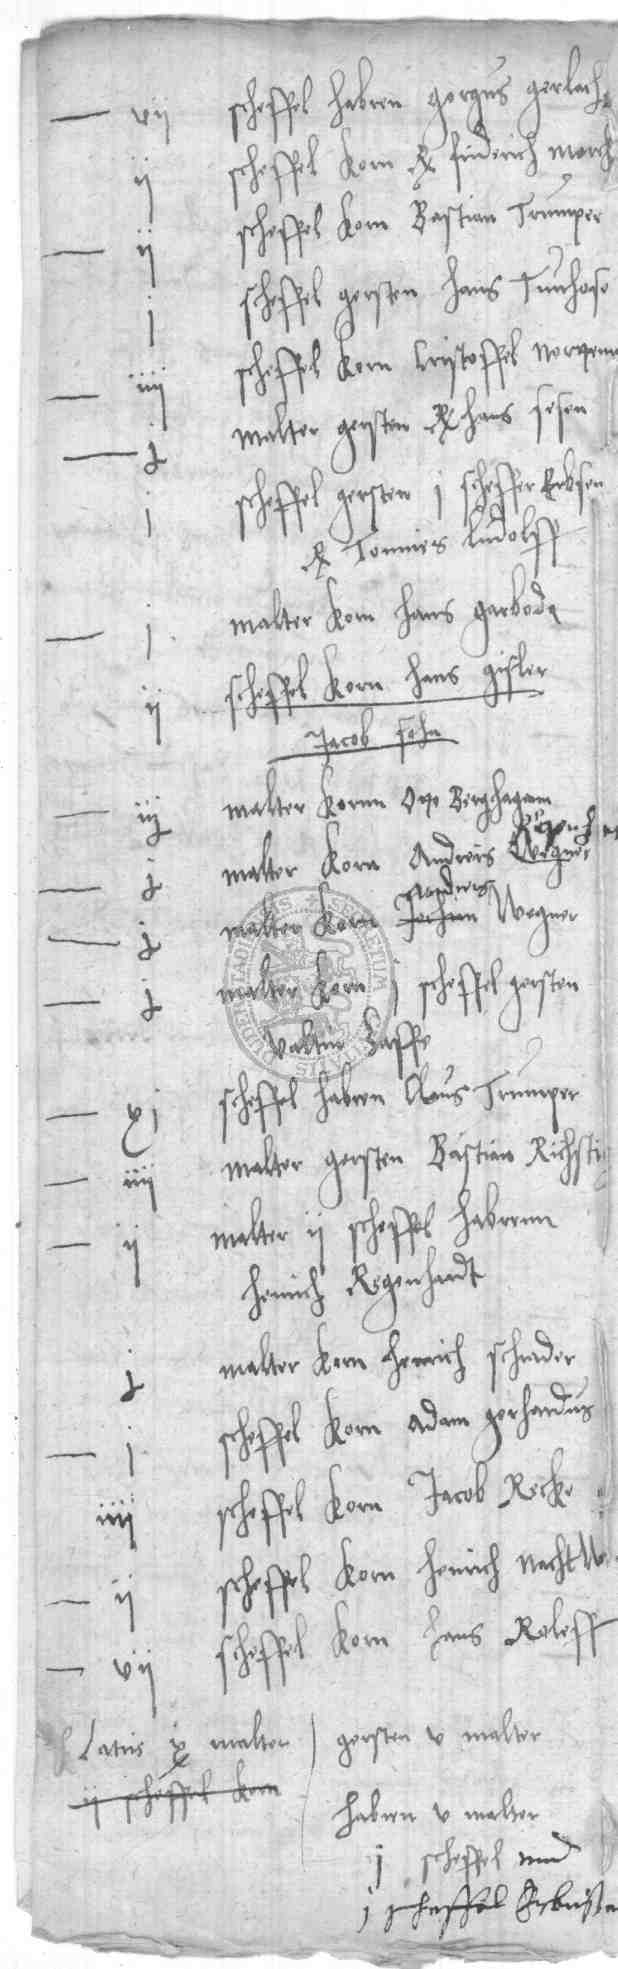 — vij scheffel habern gorgus gerlach
ij scheffel korn friderich
— ij scheffel korn Bastian Trumper
j scheffel gersten hans
— iiij scheffel korn Cristoffel
— j malter gersten hans sesen
j scheffel gersten j scheffel Erbsen
Tonnies Ludolff
— j malter korn hans garbode
ij scheffel korn hans gisler
Jacob sehn
— iij malter kornn Berghagenn
— j malter korn Andreis Wegner
Andreis
— j malter korn Wegner
— j malter korn j scheffel gersten
valtin Zaffe
— xj scheffel habern Claus Trumper
— iiij malter gersten Bastian
— ij malter ij scheffel habernn
Henrich Regenhardt
j malter korn Henrich schrader
— j scheffel korn Adam gerhardus
iiij scheffel korn Jacob Recke
— ij scheffel korn Henrich
— vij scheffel korn hans Roleff
Latus x malter gersten v malter
ij scheffel korn
habern v malter
j scheffel und
j scheffel